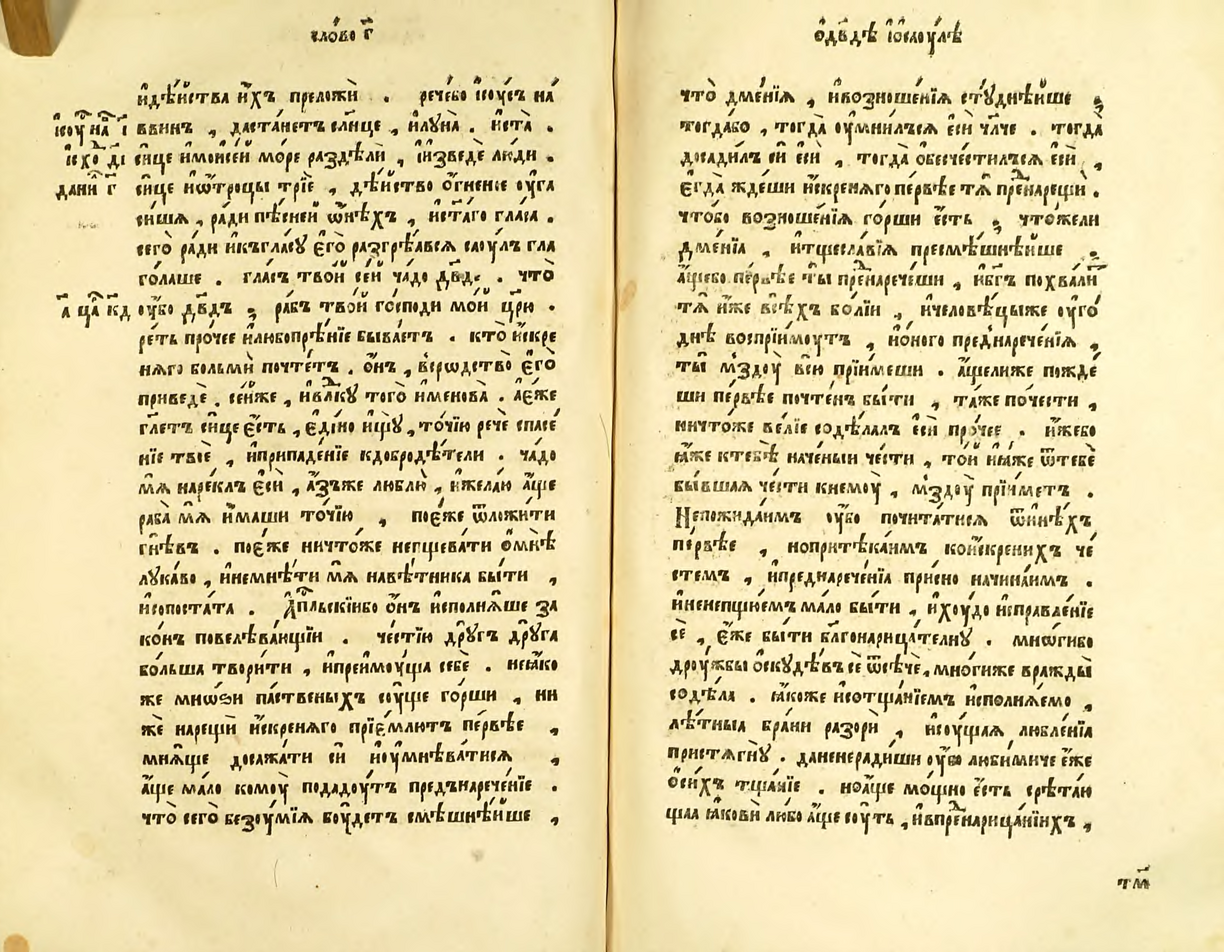 сло́во г҃
и҆дѣ́йства и҆́хъ преложѝ . рече́бо і҆соу́съ на́
і҆соу̑ на́ і҃
ввинъ , даста́нетъ сл҃нце , и҆луна̀ . и҆ста̀ .
и҆схо̑ д҃і
си́це и҆мѡѵсе́й мо́ре раздѣлѝ , и҆и҆зведѐ лю́ди .
дани̑ г҃
си́це и҆ѻ҆́троцы трїѐ , дѣ́йство о҆́гненое оу҆га
си́шѧ , ради пѣ́сней ѻ҆́нѣхъ , и҆ста́го гла́са .
сего̀ ра́ди и҆къгла́су є҆гѡ̀ разгрѣ́всѧ саоу́лъ гла
го́лаше . гла́съ тво́й се́й ча́до дв҃де . что̀
а҃ ца̑ к҃д
оу҆́бо дв҃дъ ; ра́бъ тво́й го́споди мо́й цр҃ю .
ре́ть про́чее и҆любопрѣ́нїе быва́етъ . кто̀ и҆́скре
нѧго бо́льми почте́тъ . ѻ҆́нъ , всро́дство є҆гѡ̀
приведѐ . се́йже , и҆влⷣку того̀ и҆менова̀ . а҆є҆́же
гл҃етъ си́це є҆́сть , є҆ди́но и҆щу̀ , то́чїю речѐ спасе́
нїе твоѐ , и҆припаде́нїе кдобродѣ́тели . ча́до
мѧ̀ наре́клъ є҆сѝ , а҆́зъже люблю̀ , и҆жела́ю а҆́ще
раба̀ мѧ̀ и҆́маши то́чїю , пое҆́же ѿложи́ти
гнѣ́въ . пое҆́же ничто́же непщева́ти ѡ҆мнѣ̀
лука́во , и҆немнѣ́ти мѧ̀ навѣ́тника бы́ти ,
и҆сопоста́та . а҆пⷭ҇льскїи́бо ѻ҆́нъ и҆сполнѧ́ше за
ко́нъ повелѣва́ющїи . че́стїю дрꙋ́гъ дрꙋ́га
бо́льша твори́ти , и҆преимоу́ща себѐ . неꙗ҆́ко
же мно́зи па́ственыхъ соу́ще го́рши , ни
же нарещѝ и҆́скренѧго прїе́млютъ пе́рвѣе ,
мнѧ́ще досажа́ти сѝ и҆оу҆мнѣва́тисѧ ,
а҆́ще ма́ло комоу̀ подадоу́тъ предънарече́нїе .
что̀ сего̀ безоу́мїѧ боу́детъ смѣшнѣ́йше ,
ѡ҆дв҃дѣ и҆ѡ҆саоу́лѣ
что̀ дме́нїѧ , и҆возноше́нїѧ стꙋднѣ́йше ;
тогда́бо , тогда̀ оу҆мни́лъсѧ є҆сѝ чл҃че . тогда̀
досади́лъ сѝ є҆сѝ , тогда̀ ѡ҆безче́стилъсѧ є҆сѝ ,
є҆гда̀ жде́ши и҆́скренѧго пе́рвѣе тѧ̀ пренарещѝ .
что́бо возноше́нїѧ го́рши є҆́сть ; что́жели
дме́нїѧ , и҆тщесла́вїѧ пресмѣшнѣ́йше .
а҆́щебо пе́рвѣе ты̀ пренарече́ши , и҆бг҃ъ похвали́
тъ и҆́же всѣ́хъ бо́лїи , и҆человѣ́цыже оу҆го́
днѣ воспрїи́моутъ , и҆ѻ҆́ного преднарече́нїѧ ,
ты̀ мздоу̀ всю̀ прїи́меши . а҆́щелиже пожде́
ши пе́рвѣе почте́нъ бы́ти , та́же поче́сти ,
ничто́же ве́лїе содѣ́лалъ є҆сѝ про́чее . и҆́жебо
ꙗ҆́же ктебѣ̀ наче́ныи че́сти , то́й и҆ꙗ҆́же ѿтебѐ
бы́вшаѧ че́сти кнемоу̀ , мздоу̀ прїи́метъ .
Непожида́имъ оу҆́бо почита́тисѧ ѿи҆нѣ́хъ
пе́рвѣе , нопритѣка́имъ кои҆́скренихъ че́
стемъ , и҆преднарече́нїѧ при́сно начина́имъ .
и҆ненепщюе́мъ ма́ло бы́ти , и҆хоу́до и҆справле́нїе
сѐ , є҆́же бы́ти благонарица́телнꙋ . мно́гибо
дроу́жбы ѡ҆скудѣ́въ сѐ ѿсѣ́че , мно́гиже вражды̀
содѣ́ла . ꙗ҆́коже и҆сотща́нїемъ и҆сполнѧ́емо ,
лѣ́тныѧ бра́ни разорѝ , и҆соу́щаѧ любле́нїѧ
пристѧ́гнꙋ . даненеради́ши оу҆́бо люби́миче є҆́же
ѡ҆си́хъ тща́нїе . ноа҆́ще мо́щно є҆́сть срѣ́таю
щаѧ ꙗ҆ковѝ лю́бо а҆́ще соу́ть , и҆впренарица́нїихъ ,
тм̑